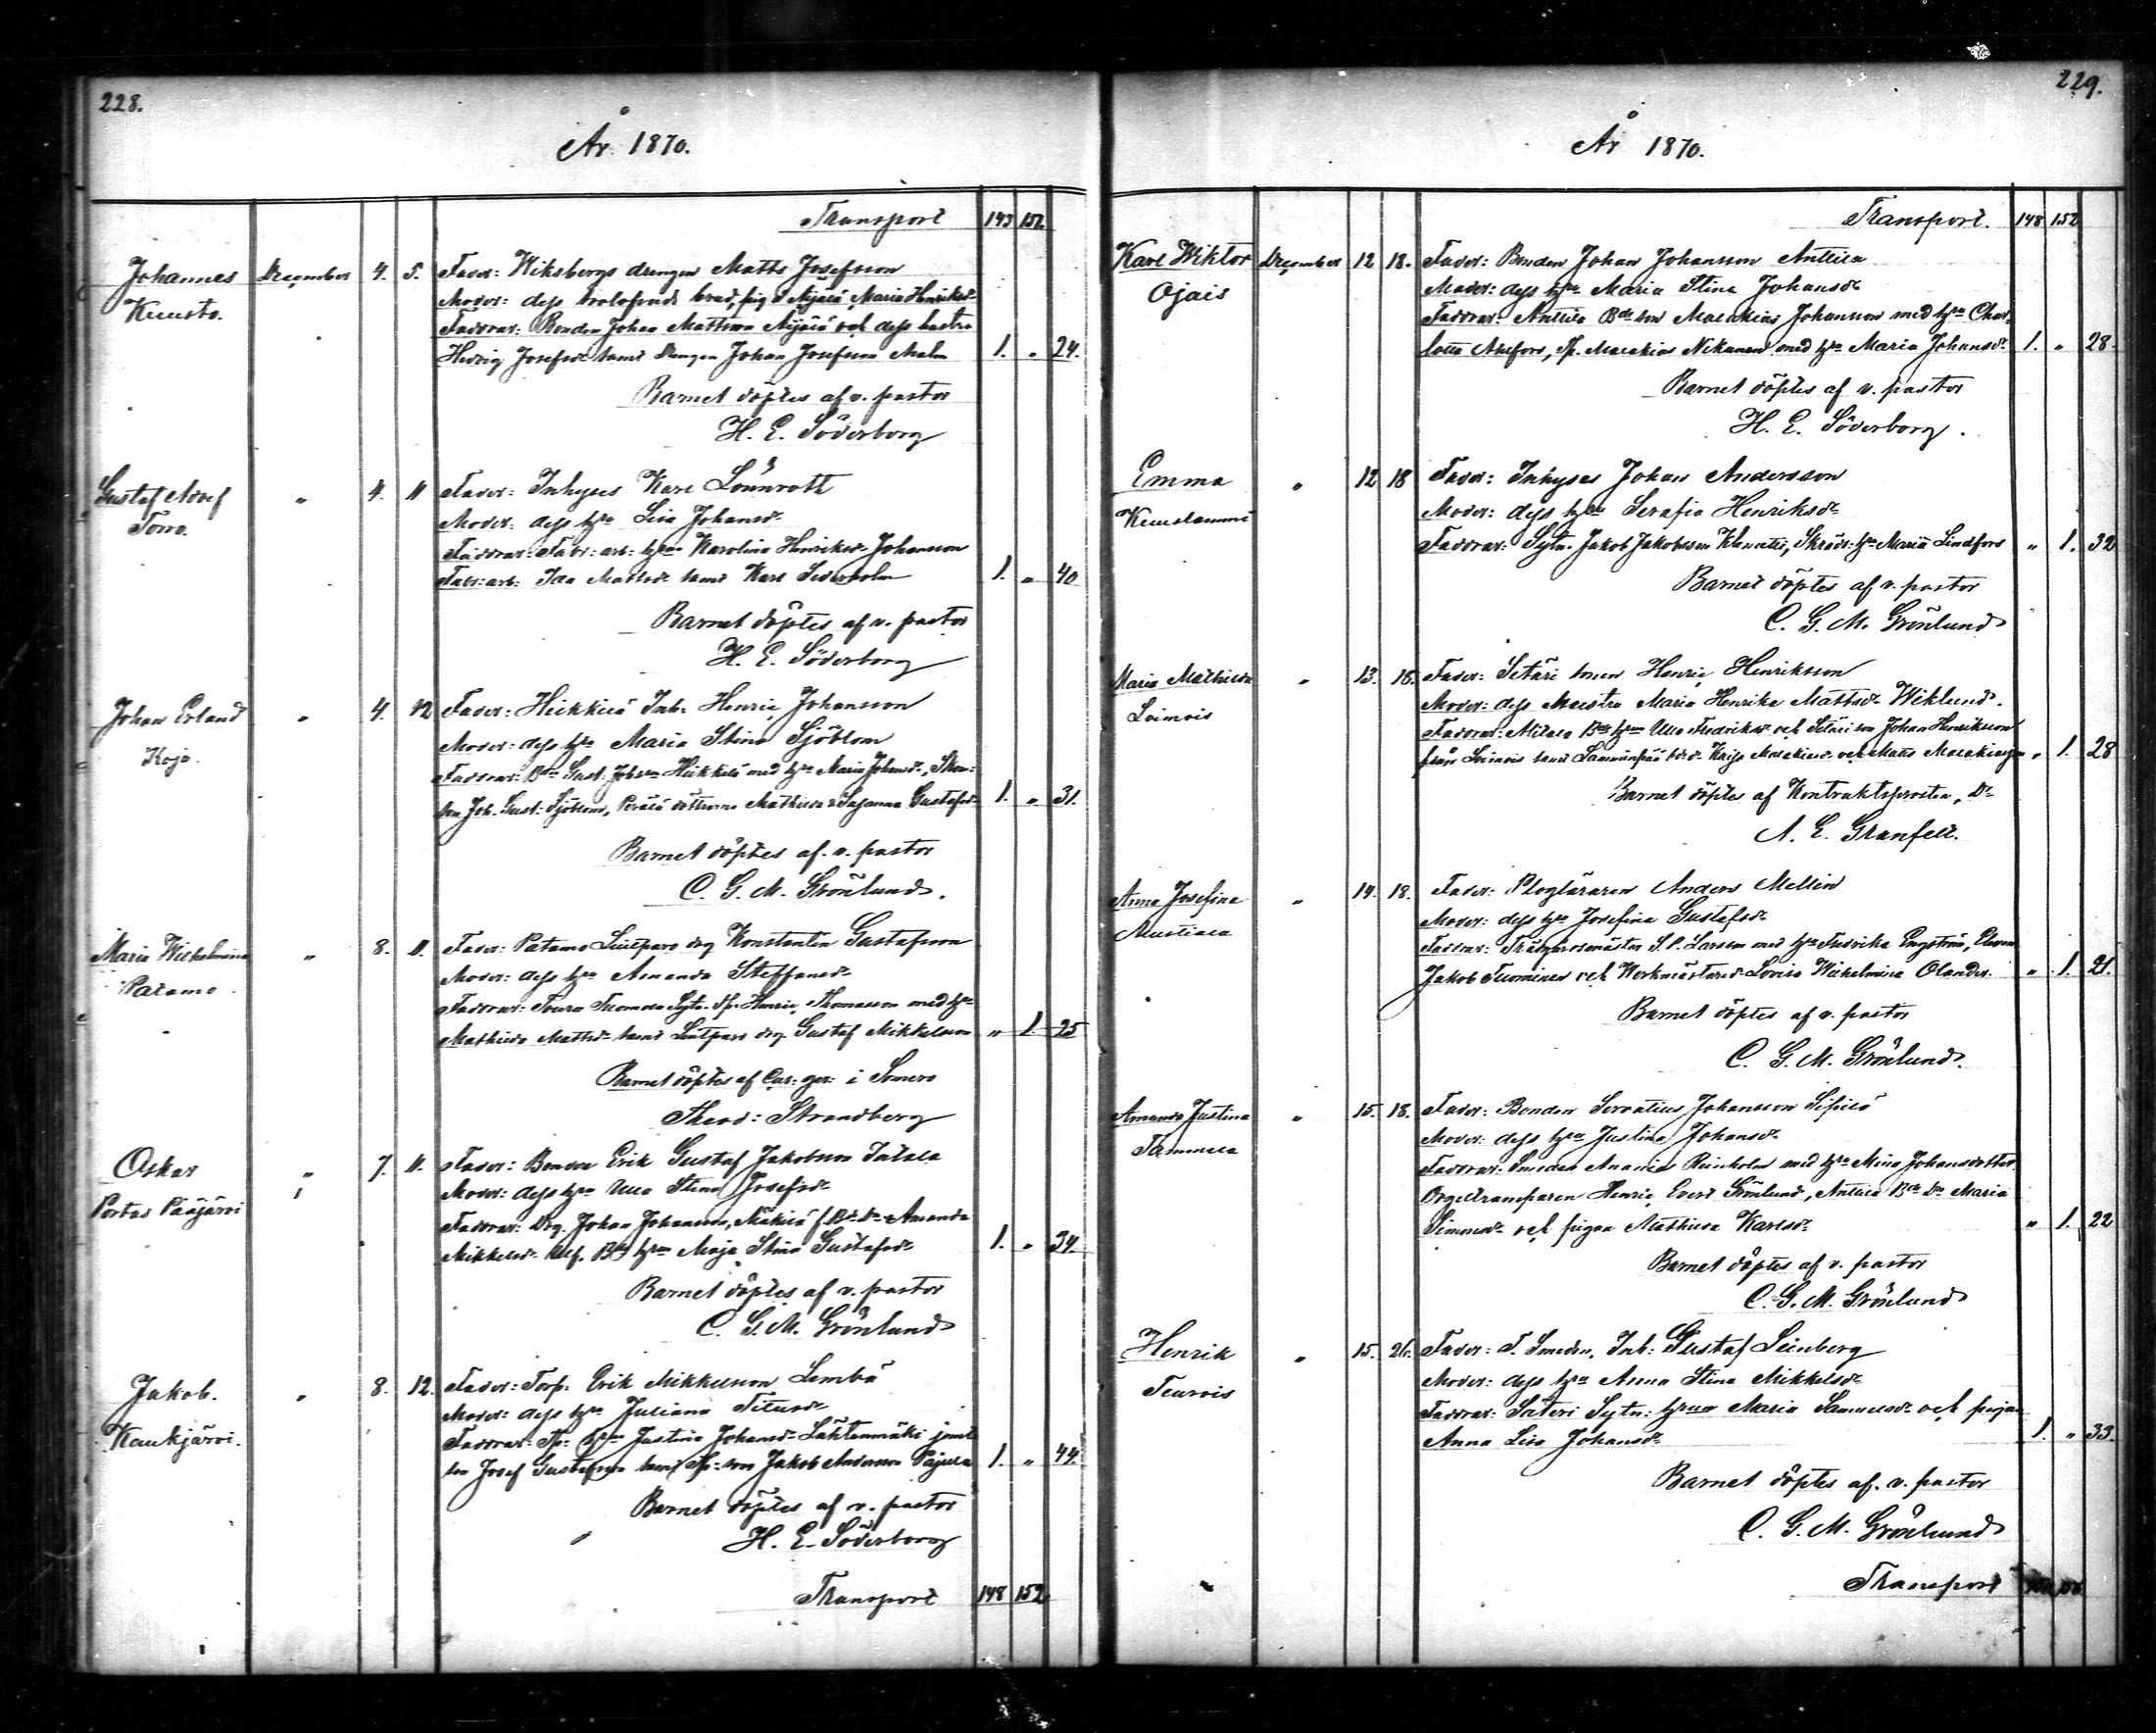 228.
År 1870.
Transport 143 151.
Johannes December 4. 5. Fader: Wiksbergs drengen Matts Josefsson
Kuusto. Moder: dess trolofvade brud, pig. Maria Henriksdr
Faddrar: Bonden Johan Mattsson och dess hustru
Hedvig Josefsdr samt drengen Johan Josefsson Malm 1. „ 24.
Barnet döptes af v. pastor
H. E. Söderborg
Gustaf Adolf „ 4. 11 Fader: Inhyses Karl Lönnroth
Torro. Moder: dess h:u Lisa Johansdr
Faddrar: Fabr: arb: h:un Karolina Henriksdr Johansson
Fabr: arb: Ida Mattsdr samt Karl Sederholm 1. „ 40
Barnet döptes af v. pastor
H. E. Söderborg
Johan Erland „ 4. 12 Fader: Heikkilä Inh. Henric Johansson
Kojo. Moder: dess h:u Maria Stina Sjöblom
Faddrar: Bdn Gust. Joh:son Heikkilä med h:u Maria Johansdr,
son Joh. Gust. Sjöblom, Perälä döttrarna Mathilda & Susanna Gustafsdr 1. „ 31.
Barnet döptes af. v. pastor
C. G. M. Grönlund.
Maria Wilhelmina „ 8. 11. Fader: Patamo drg Konstantin Gustafsson
Patamo. Moder: dess h:u Amanda Steffansdr
Faddrar: Tuomola Sytn. Tp. Henric Thomasson med h:u
Mathilda Mattsdr samt drg Gustaf Mikkelsson „ 1. 25
Barnet döptes af Cap: ger: i Somero
Theod: Strandberg
Oskar „ 7. 11. Fader: Bonden Erik Gustaf Jakobsson Intala
Portas Pääjärvi Moder: dess h:u Ulla Stina Josefsdr
Faddrar: Drg. Johan Johansson, Mäkilä Bd. Dr Amanda
Mikkelsdr Ulf. Bds h:un Maja Stina Gustafsdr 1. „ 34.
Barnet döptes af v. pastor
C. G. M. Grönlund
Jakob. „ 8. 12. Fader: Torp. Erik Mikkelsson Lembä
Kaukjärvi. Moder: dess h:u Juliana Titusdr
Faddrar: Tp: h:un Justina Johansdr Lähtenmäki jemte
son Josef Gustafsson samt Tp: son Jakob Andersson Pajula 1. „ 44.
Barnet döptes af v. pastor
H. E. Söderborg
Transport 148 152.
229.
År 1870.
Transport. 148 152
Karl Wiktor December 12 18. Fader: Bonden Johan Johansson Anttila
Ojais Moder: dess h:u Maria Stina Johansdr
Faddrar: Anttila Bde son Malakias Johansson med h:u Char-
lotta Ahlfors, Tp. Malakias Nikanen med h:u Maria Johansdr. 1. „ 28.
Barnet döptes af v. pastor
H. E. Söderborg.
Emma „ 12 18 Fader: Inhyses Johan Andersson
Kuuslammi Moder: dess h:u Serafia Henriksdr
Faddrar: Sytn. Jakob Jakobsson, Skrädr: h:u Maria Lindfors „ 1. 32
Barnet döptes af v. pastor
C. G. M. Grönlund
Maria Mathilda „ 13. 16. Fader: Setäri sonen Henric Henriksson
Loimois Moder: dess Maria Henrika Mattsdr Wiklund.
Faddrar: Bds h:un Ulla Fredriksdr och Setäri son Johan Henriksson
från Loimois samt Lamminpää Kajsa Malakiasdr och Matts Malakiasson „ 1. 28
Barnet döptes af Kontraktsprosten, Dr
A. E. Granfelt.
Anna Josefina „ 14. 18. Fader: Plogläraren Anders Mellin
Mustiala Moder: dess h:u Josefina Gustafsdr
Faddrar: Trädgårdsmästar S. P. Larsson med h:u Fredrika Engström, Eleven
Jakob Tuominen och Werkmästared. Lovisa Wilhelmina Olander. „ 1. 21.
Barnet döptes af v. pastor
C. G. M. Grönlund.
Amanda Justina „ 15. 18. Fader: Bonden Servatius Johansson Sipilä
Tammela Moder: dess h:u Justina Johansdr
Faddrar: Smeden Ananias Reinholm med h:u Mina Johansdotter
Orgeltramparen Henric Evert Grönlund, Anttila Bde Dr Maria
Simonsdr och pigan Mathilda Karlsdr „ 1. 22
Barnet döptes af v. pastor
C. G. M. Grönlund
Henrik „ 15. 26. Fader: F. Smeden, Inh: Gustaf Leinberg
Teurois Moder: dess h:u Anna Stina Mikkelsdr
Faddrar: Säteri Sytn: h:un Maria Samuelsdr och pigan
Anna Lisa Johansdr 1. „ 33.
Barnet döptes af. v. pastor
C. G. M. Grönlund
Transport